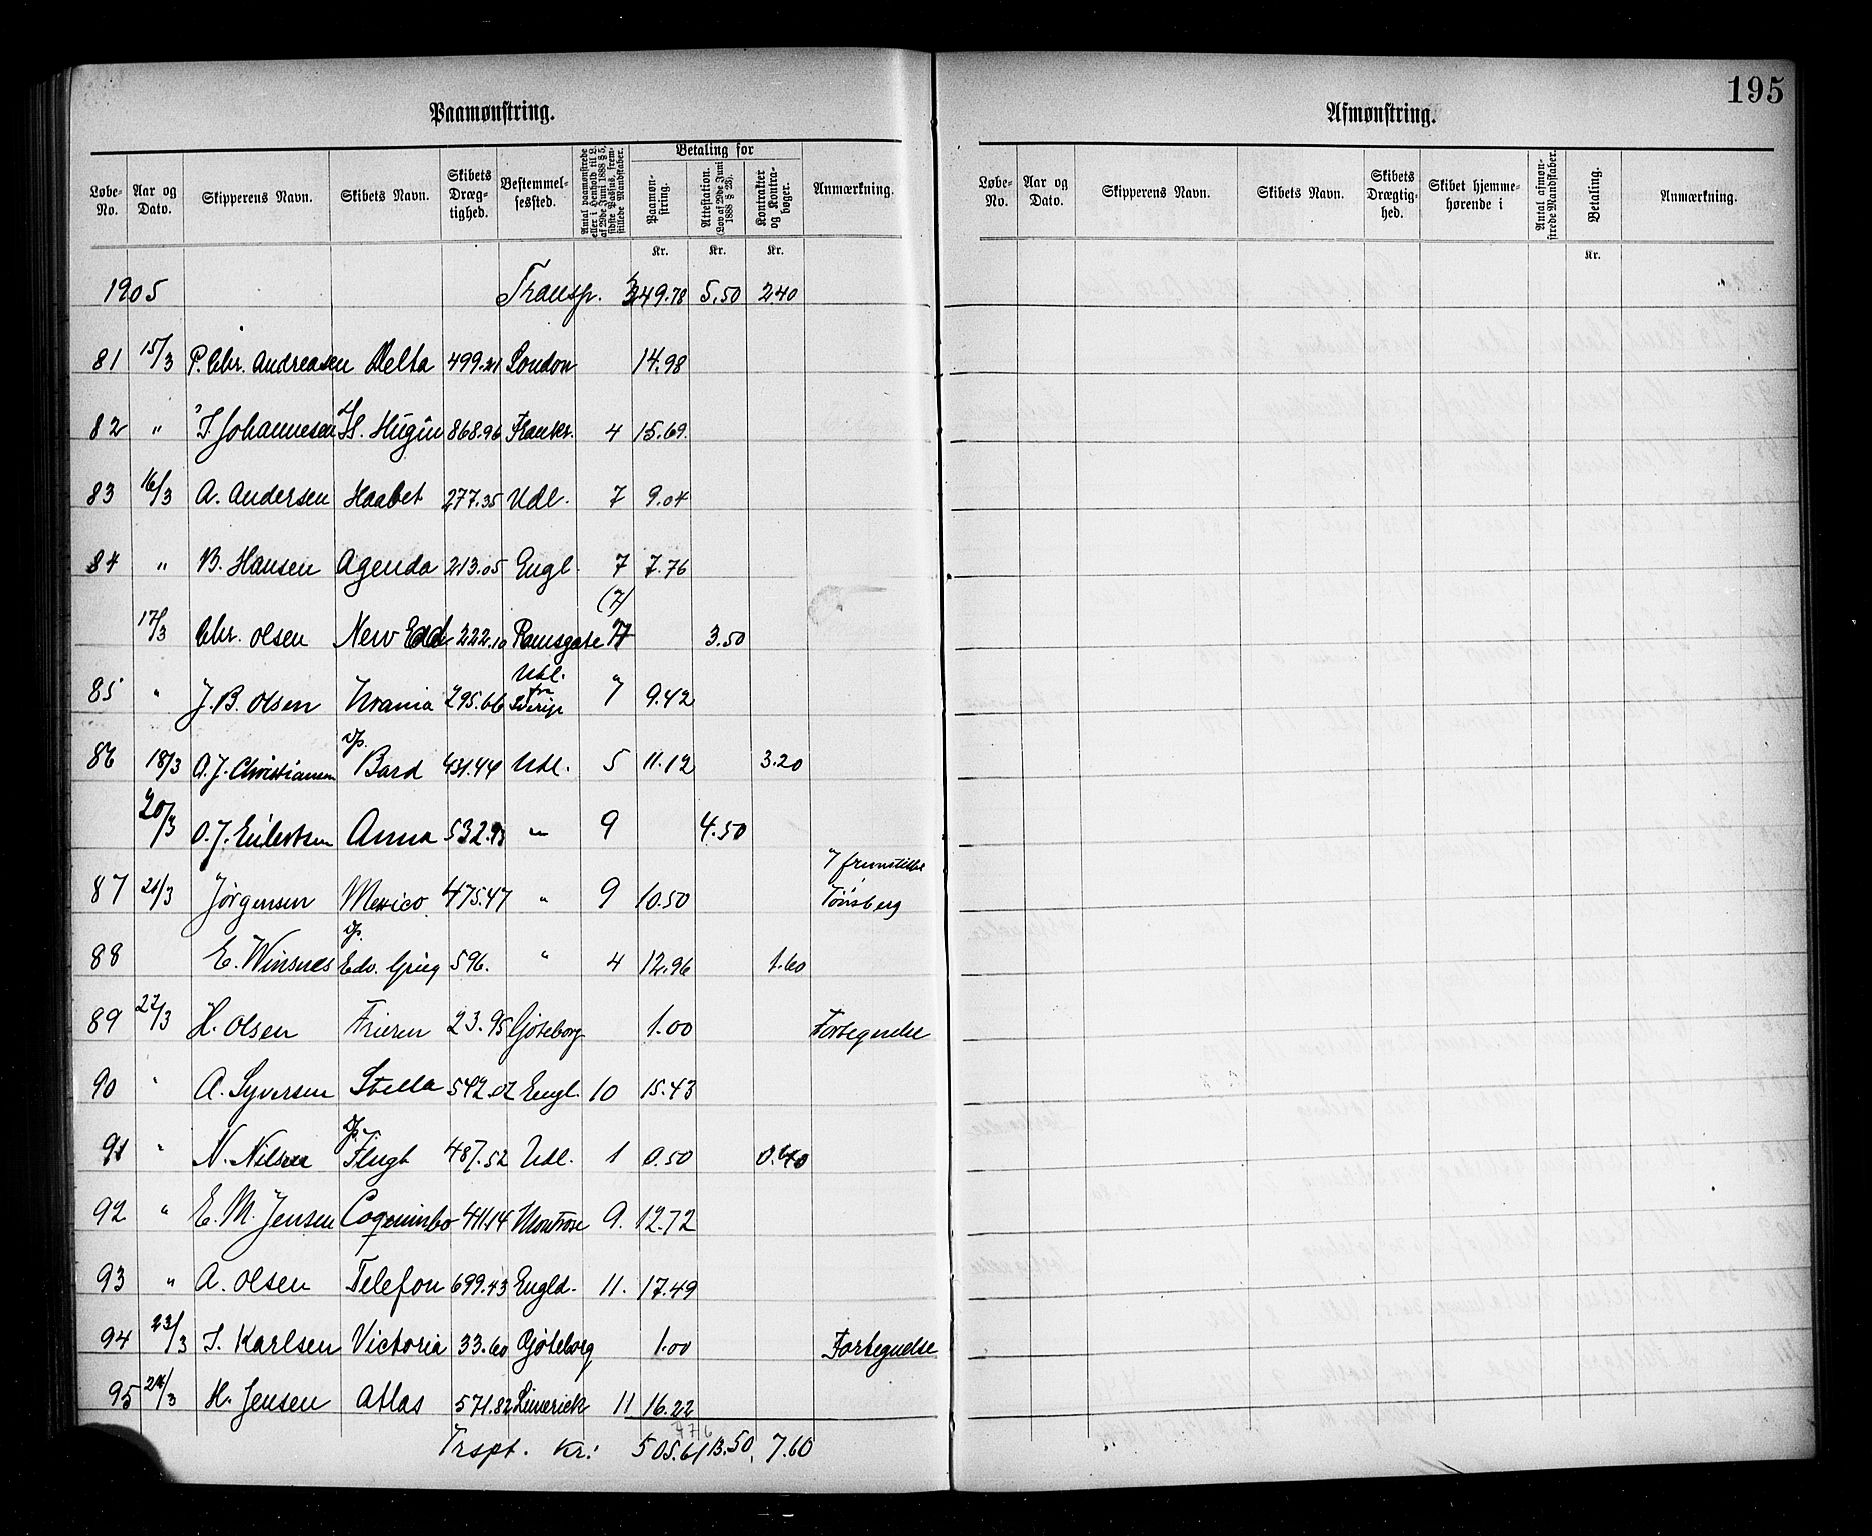 195
Paamønstring.
Løbe-No. | Aar og Dato. | Skipperens Navn. | Skibets Navn. | Skibets Dræg-tighed. | Bestemmel-sessted. | Antal paamønstrede eller i Henhold til L. af 29de Juni 1888 § 5, sidste Passus, frem-stillede Mandskaber. | Betaling for | Paamøn-string. | Attestation. (Lov af 29de Juni 1888 § 23). | Kontrakter og Kontra-bøger. | Anmærkning.
Kr. Kr. Kr.
1905 Transp. 349.78 5.50 2.40
81 15/3 P. Chr. Andreasen Delta 499.21 London 14.98
82 " J. Johannesen S/S. Hugin 868.96 Frankr. 4 15.69
83 16/3 A. Andersen Haabet 277.35 Udl. 7 9.04
84 " B. Hansen Agenda 213.05 Engl. 7 7.76
17/3 Chr. Olsen New 222.10 Ramsgate (7) 7 3.50
85 " J. B. Olsen Urania 295.66 Udl. fra Sverige 7 9.42
86 18/3 A. J. Christiansen Bard 431.44 Udl. 5 11.12 3.20
20/3 O. J. Eilertsen Anna 532.93 " 9 4.50
87 21/3 Jørgensen Mexico 475.47 " 9 10.50 7 fremstillet Tønsberg
88 E. Winsnes Edv. Grieg 596. " 4 12.96 1.60
89 22/3 H. Olsen Frieren 23.95 Gøteborg 1.00 Fortegnelse
90 " A. Syversen Stella 542.02 Engl. 10 15.43
91 " N. Nilsen Flugt 487.52 Udl. 1 0.50 0.40
92 " E. M. Jensen Coquimbo 411.14 Montrose 9. 12.72
93 " A. Olsen Telefon 699.43 Engld. 11. 17.49
94 23/3 J. Karlsen Victoria 33.60 Gøteborg 1.00 Fortegnelse
95 24/3 H. Jensen Atlas 571.82 Limerick 11 16.22
Trspt. Kr: 505.61 13.50 7.60
Afmønstring.
Løbe-No. | Aar og Dato. | Skipperens Navn. | Skibets Navn. | Skibets Drægtig-hed. | Skibet hjemme-hørende i | Antal afmøn-strede Mandskaber. | Betaling. | Anmærkning.
Kr.